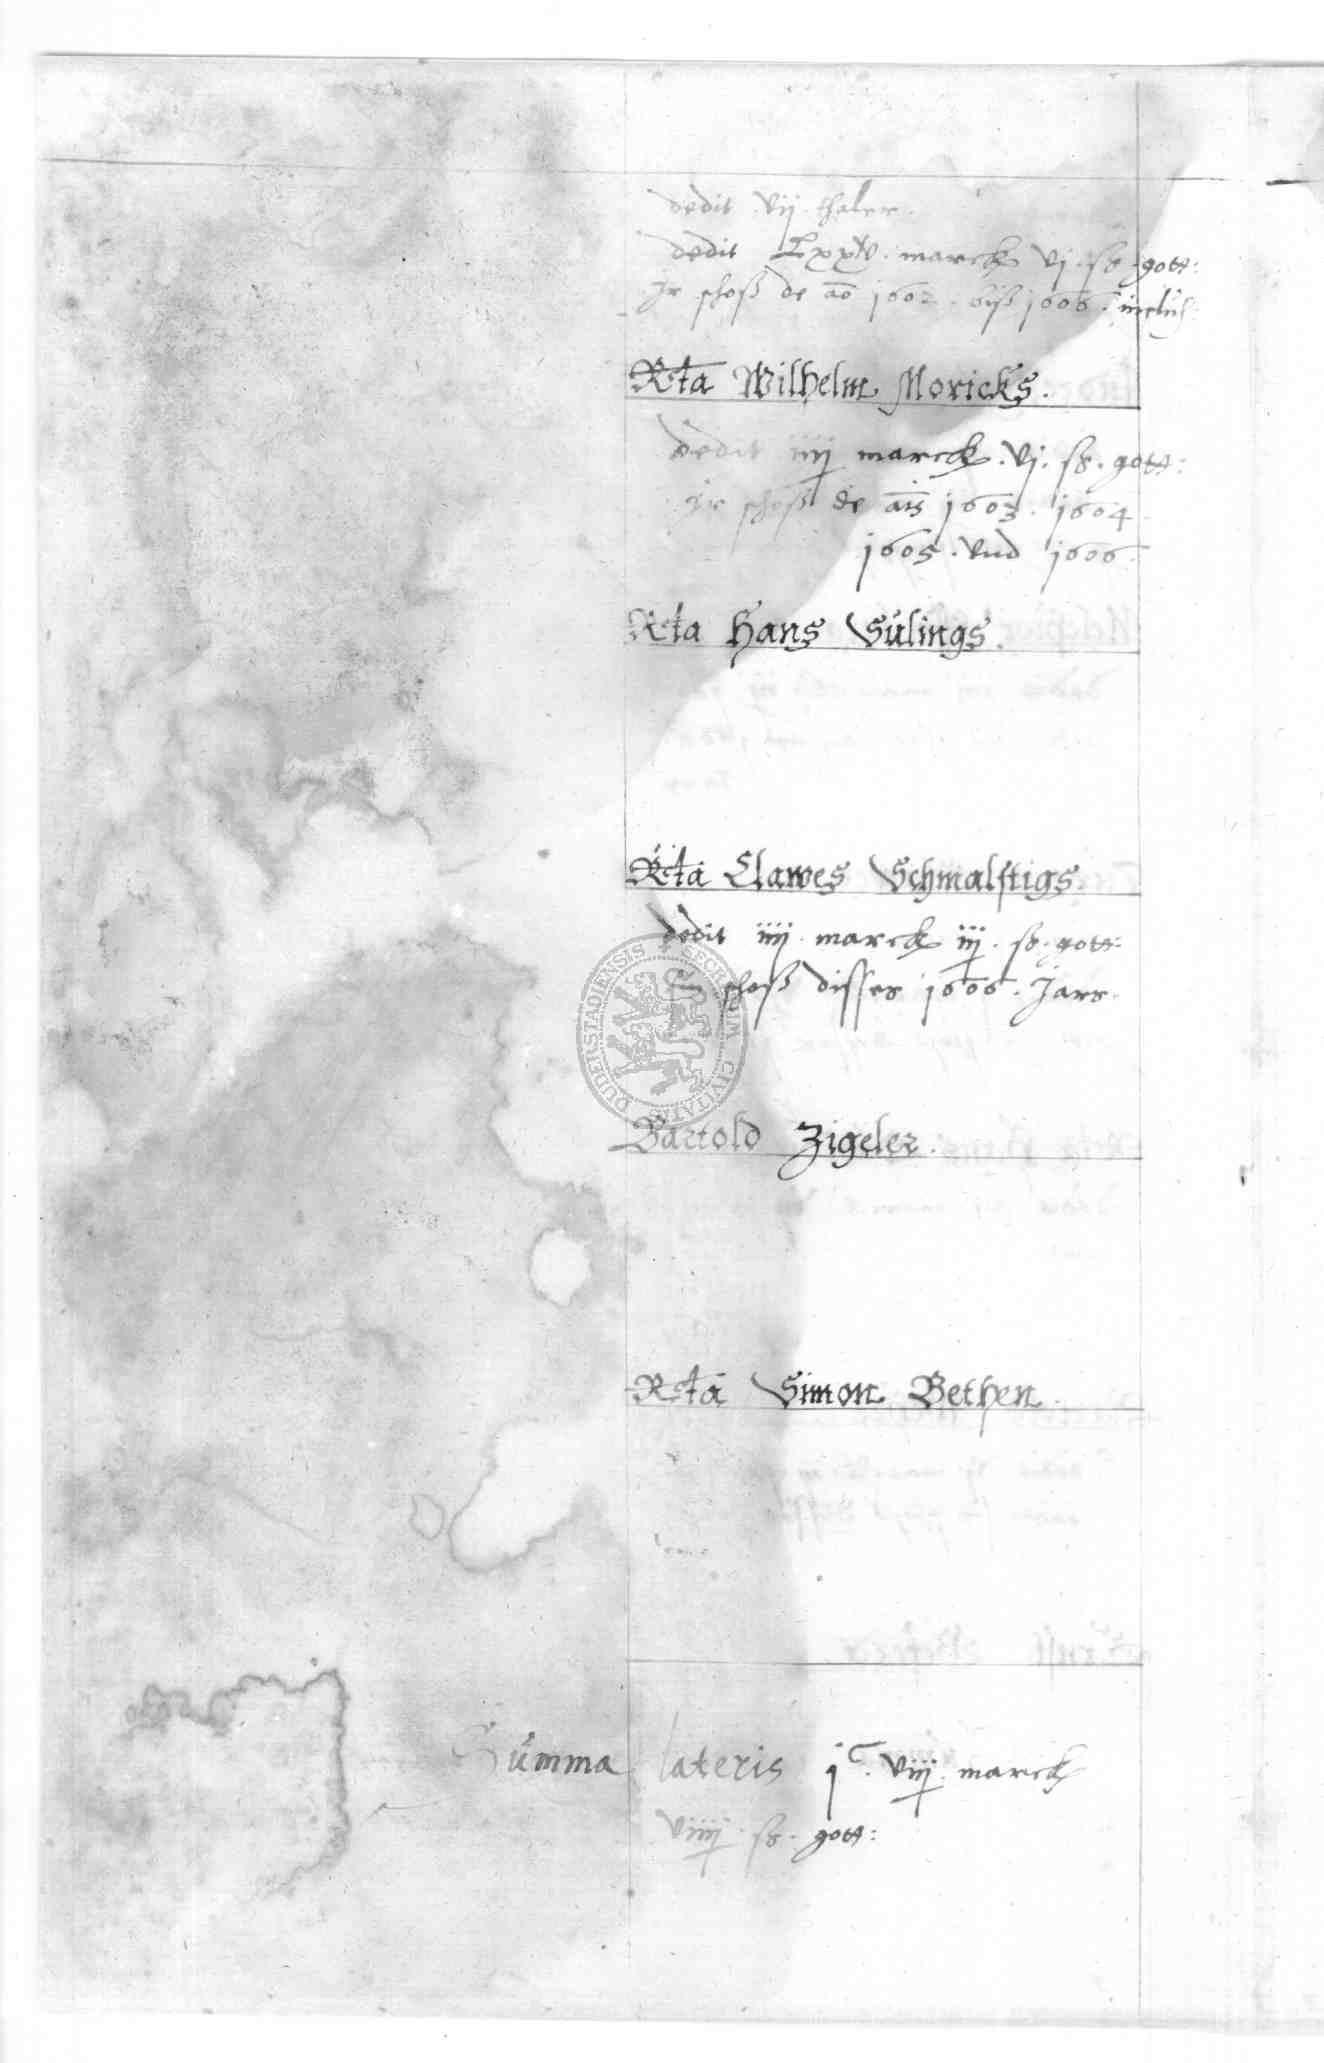 dedit vij thaler.
dedit Lxxv. marck vj. sß. gott:
Ir schoß de ao 1602. biß 1606. inclus:
Rcta Wilhelm Moricks.
dedit iiij marck. vj. sß. gott:
Ir schoß de ais 1603. 1604
1605. vnd 1606.
Rcta Hans Sülings.
Rcta Clawes Schmalstigs.
dedit iiij. marck iij. sß. gott:
schoß disses 1606. Jars.
SECRETUM CIVITATIS DUDERSTADIENSIS
Bartold Zigeler.
Rcta Simon Bethen.
Summa lateris jC. viij. marck
viiij. sß. gott: